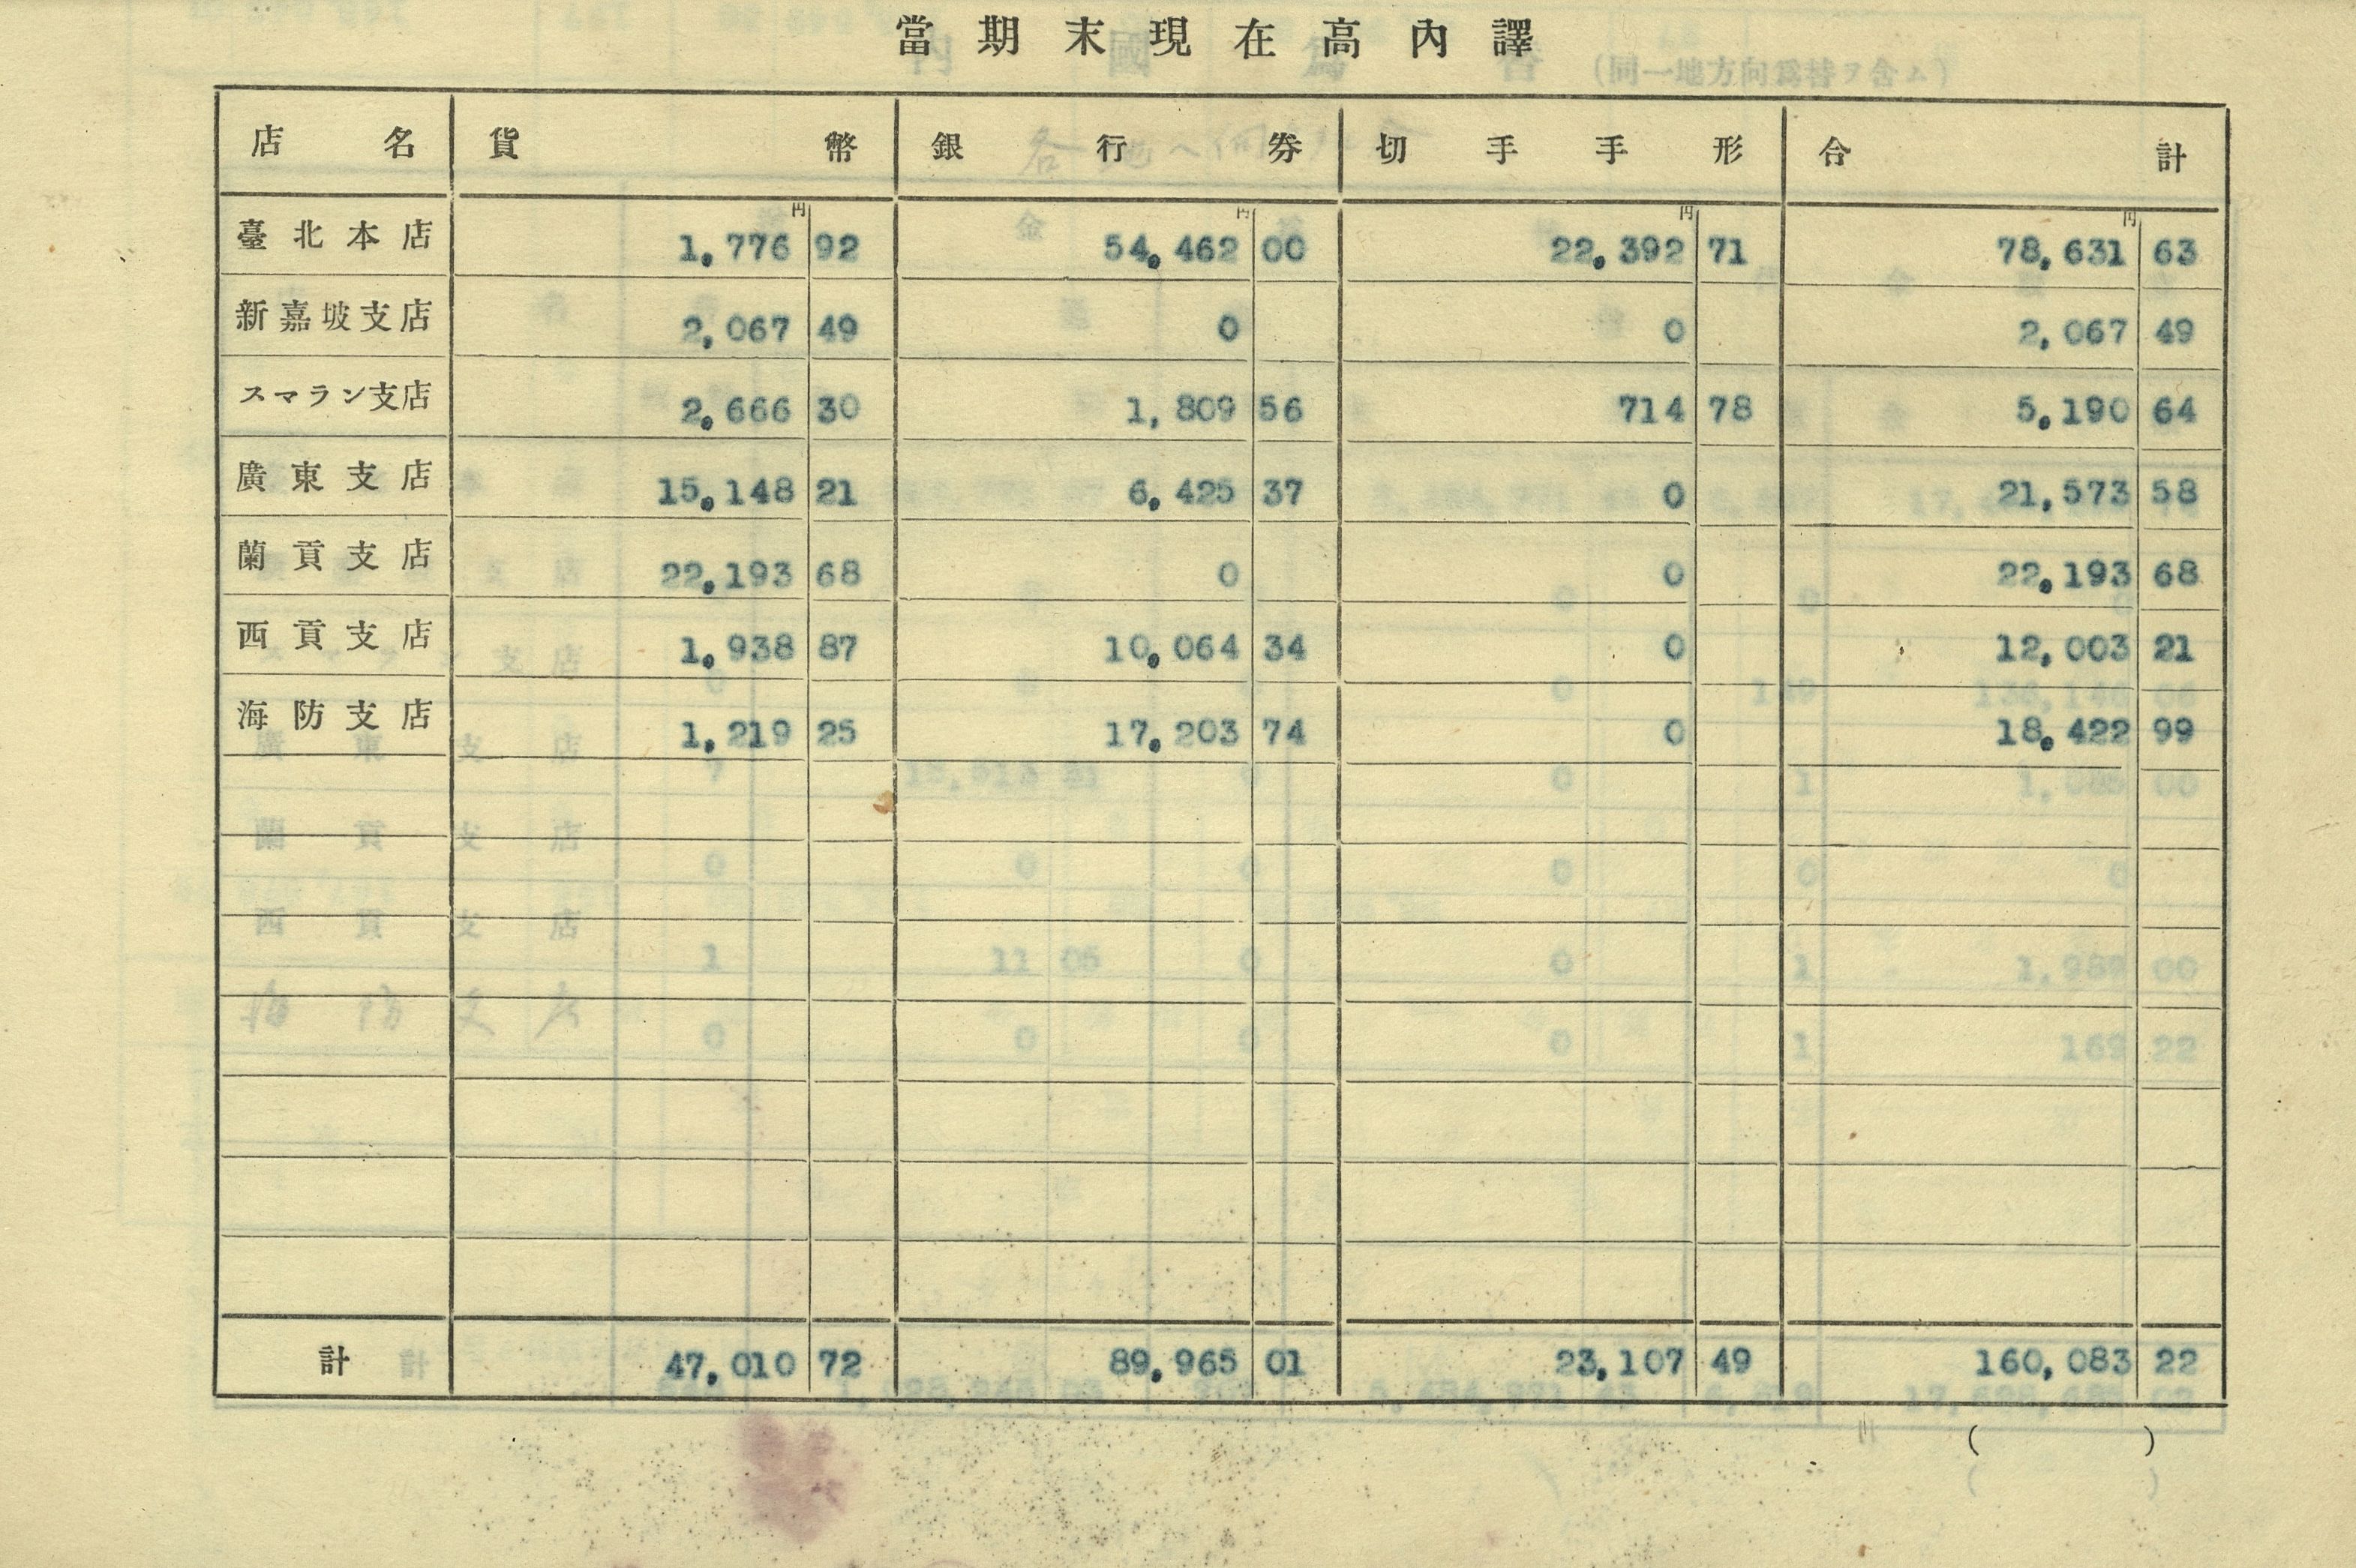 當期末現在高內譯
店名 貨幣 銀行券 切手手形 合計
円 円 円 円
臺北本店 1,776 92 54,462 00 22,392 71 78,631 63
新嘉坡支店 2,067 49 0 0 2,067 49
スマラン支店 2,666 30 1,809 56 714 78 5,190 64
廣東支店 15,148 21 6,425 37 0 21,573 58
蘭貢支店 22,193 68 0 0 22,193 68
西貢支店 1,938 87 10,064 34 0 12,003 21
海防支店 1,219 25 17,203 74 0 18,422 99
計 47,010 72 89,965 01 23,107 49 160,083 22
( )